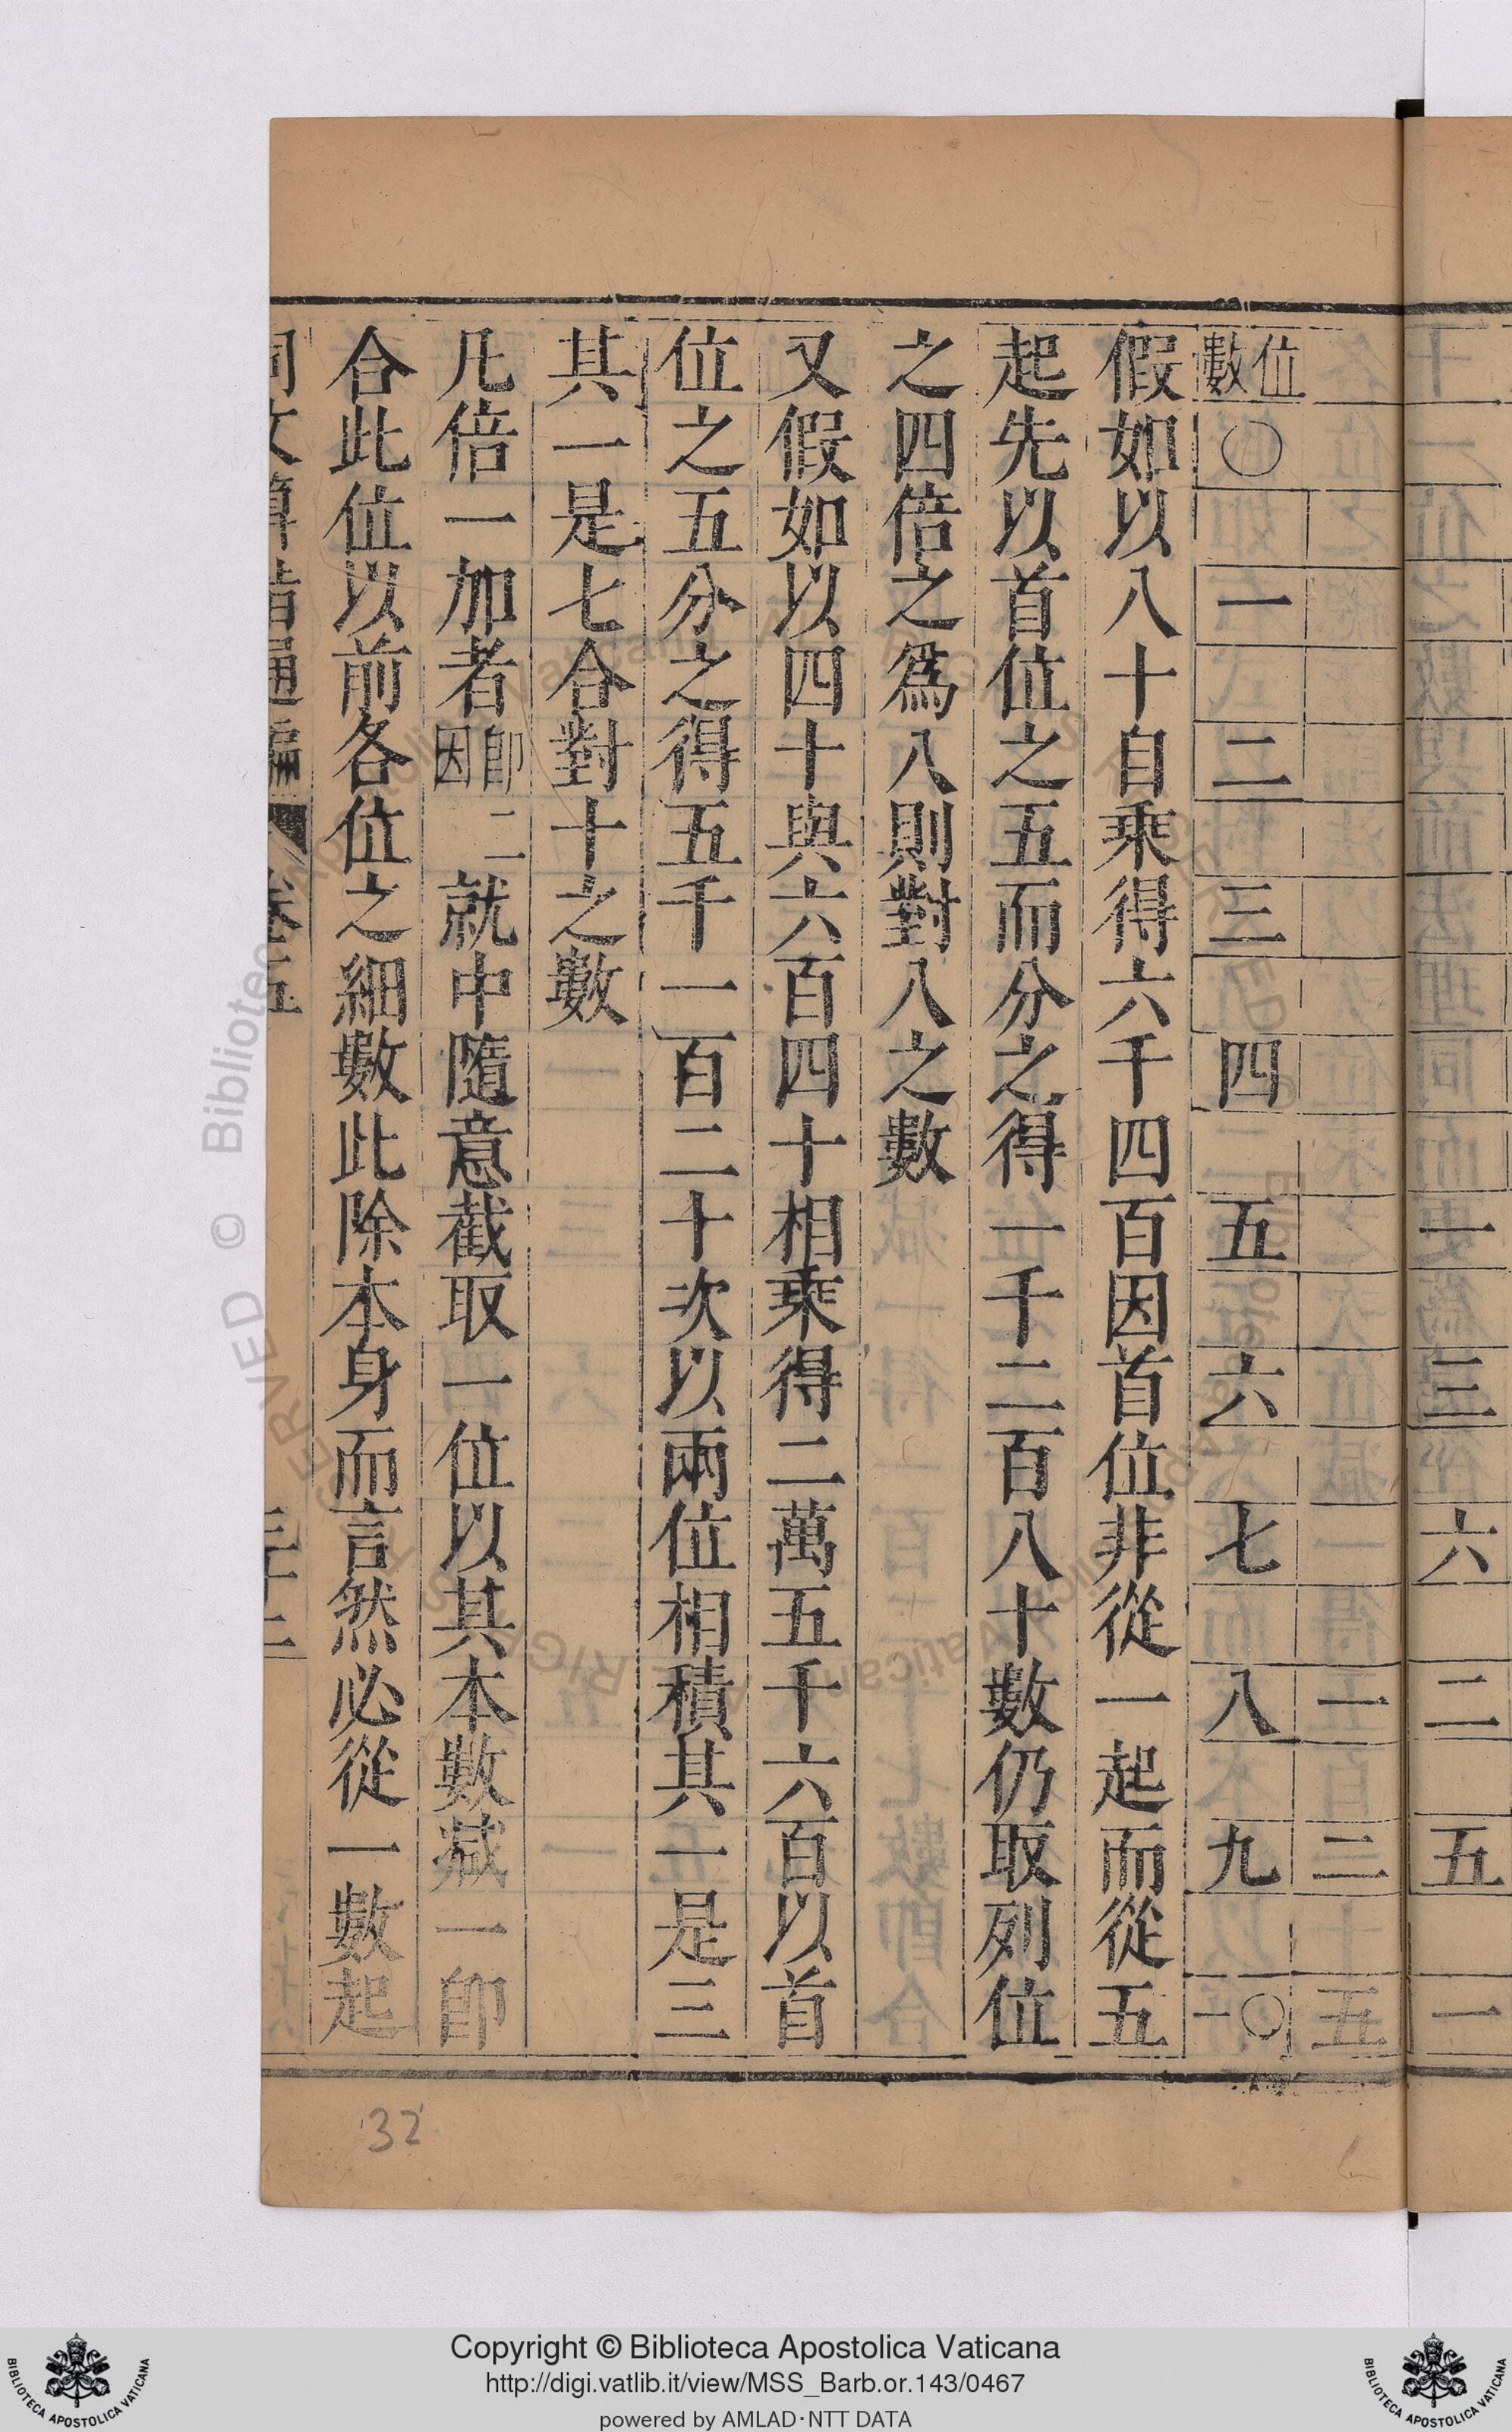 一 三 六 二 五 一
一 二 五
位數 〇 一 二 三 四 五 六 七 八 九 一〇
假如以八十自乘得六千四百因首位非從一起而從五
起先以首位之五而分之得一千二百八十數仍取列位
之四倍之爲八則對八之數
又假如以四十與六百四十相乘得二萬五千六百以首
位之五分之得五千一百二十次以兩位相積其一是三
其一是七合對十之數
凡倍一加者卽二因就中隨意截取一位以其本數減一卽
合此位以前各位之細數此除本身而言然必從一數起
同文算指通編 卷五 三十二
32
Copyright © Biblioteca Apostolica Vaticana
http://digi.vatlib.it/view/MSS_Barb.or.143/0467
powered by AMLAD·NTT DATA
BIBLIOTECA APOSTOLICA VATICANA
BIBLIOTECA APOSTOLICA VATICANA